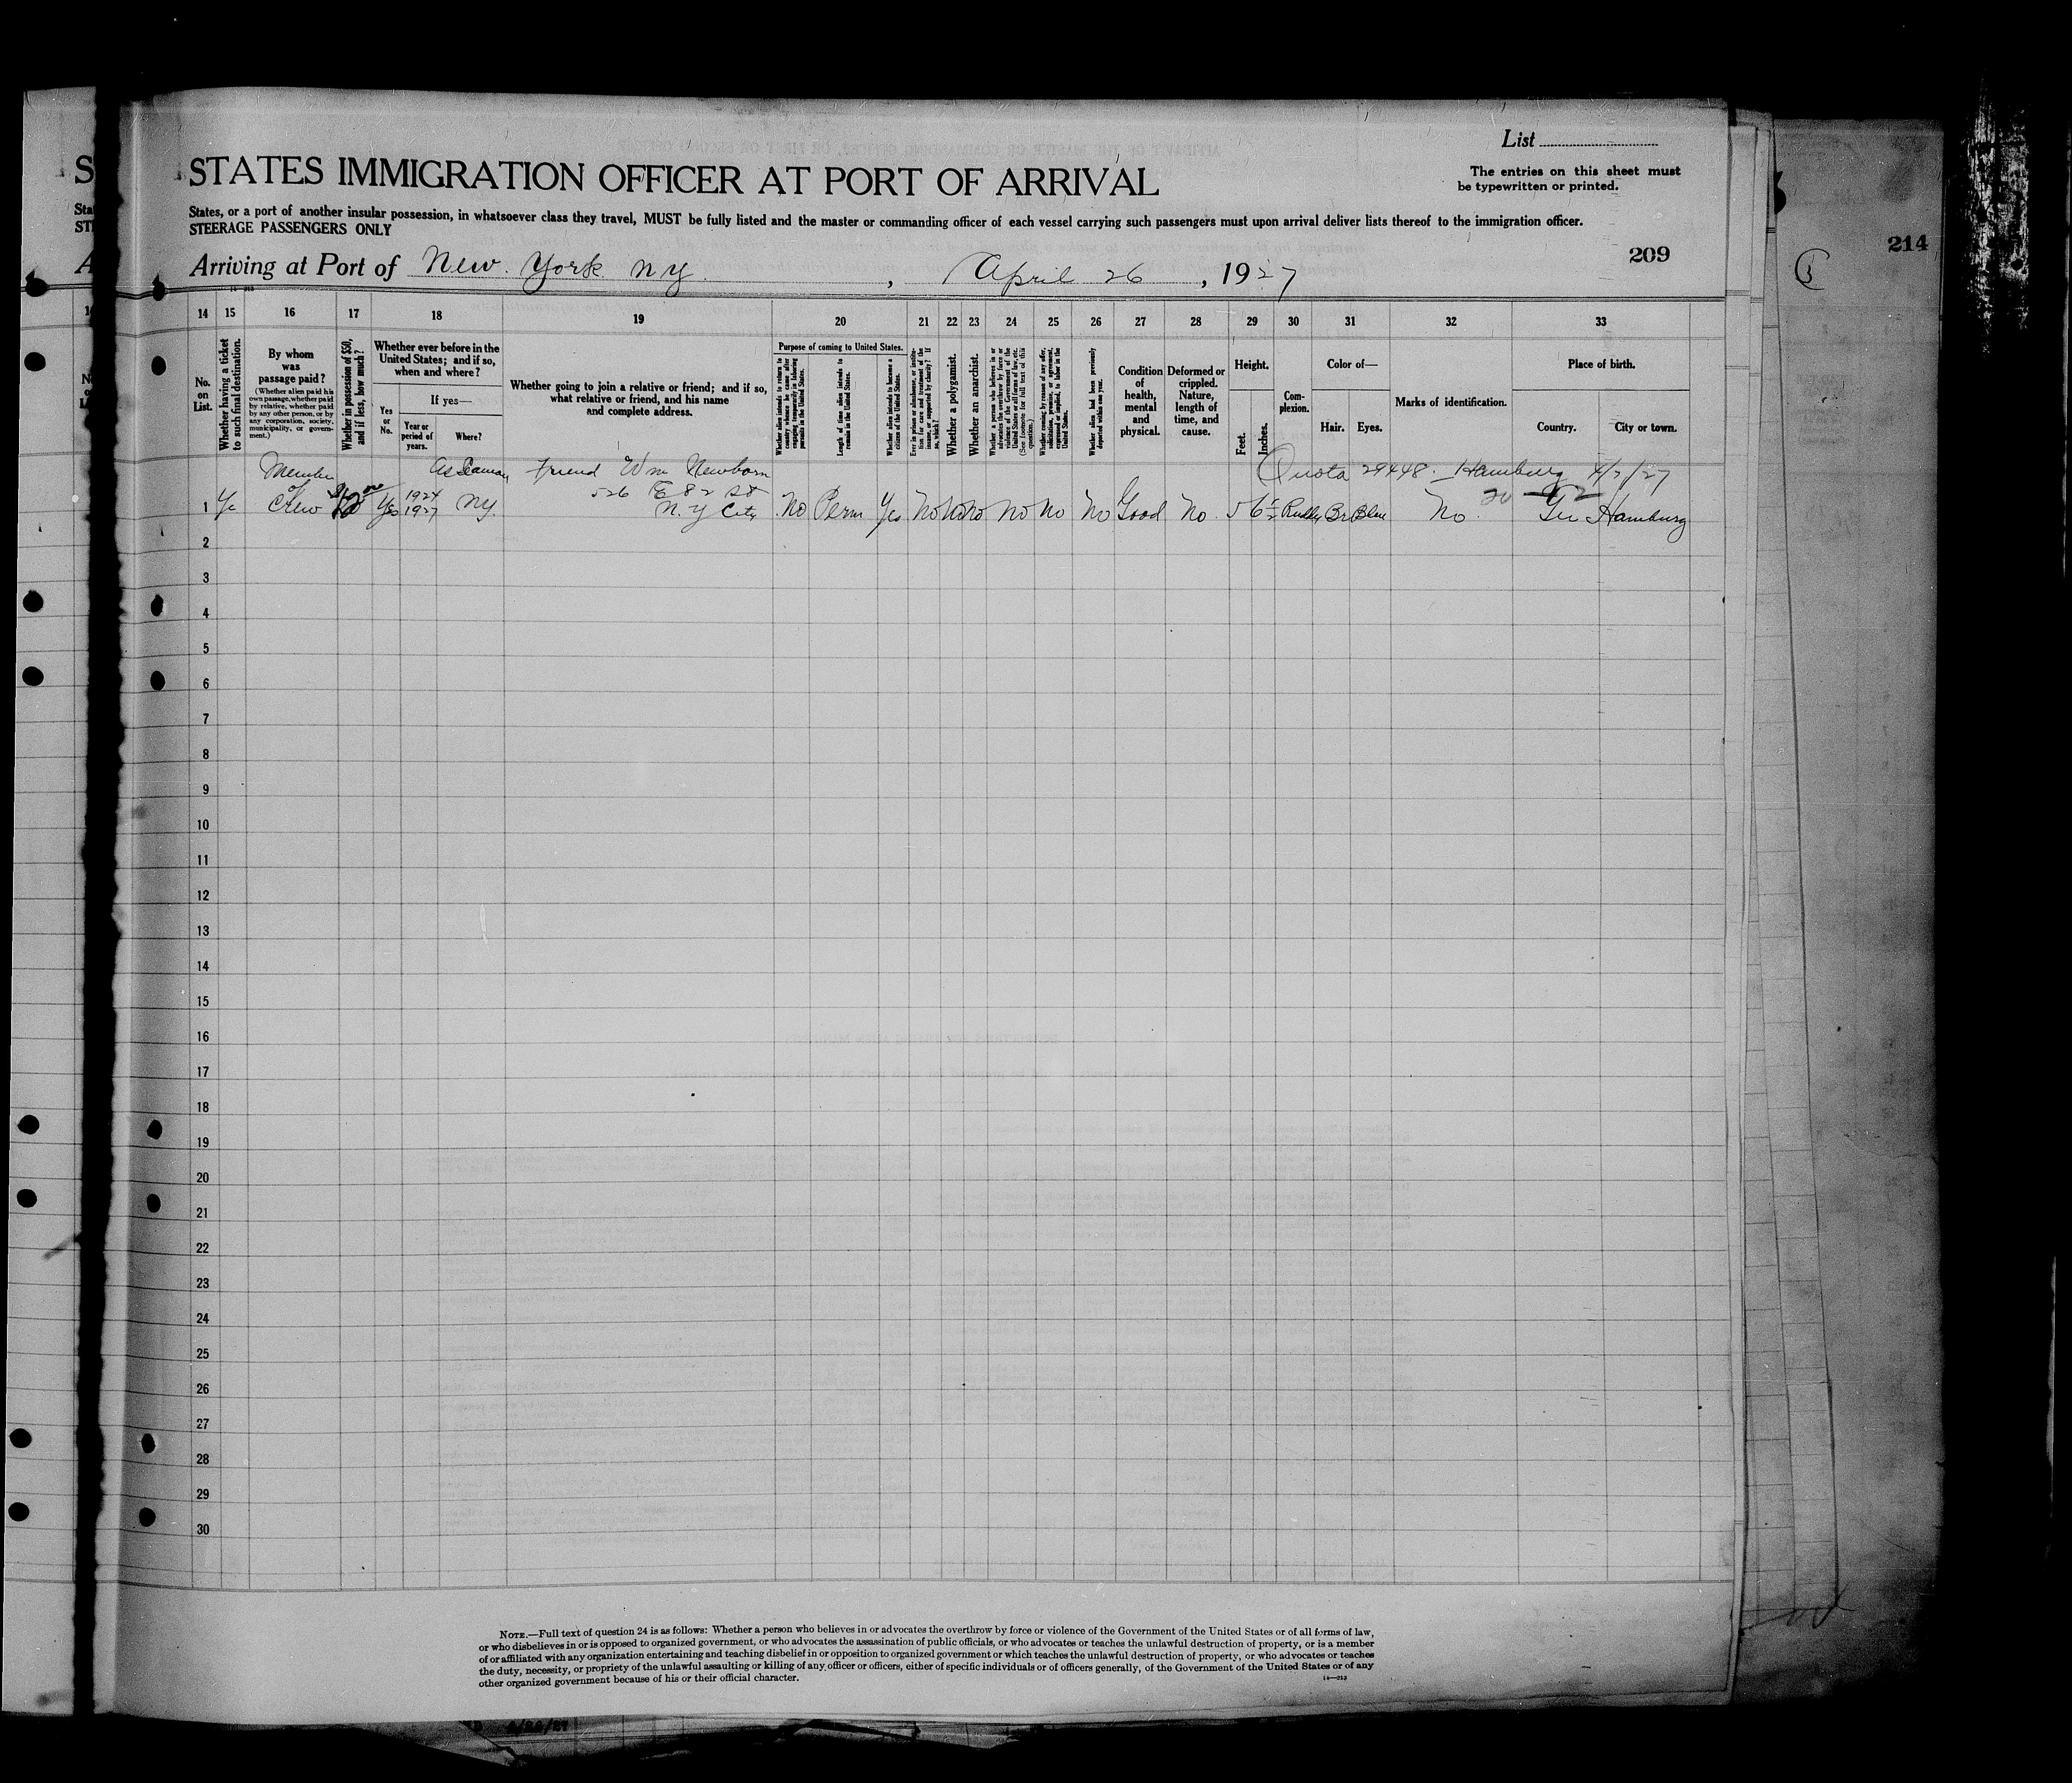 List
STATES IMMIGRATION OFFICER AT PORT OF ARRIVAL
The entries on this sheet must
be typewritten or printed.
States, or a port of another insular possession, in whatsoever class they travel, MUST be fully listed and the master or commanding officer of each vessel carrying such passengers must upon arrival deliver lists thereof to the immigration officer.
STEERAGE PASSENGERS ONLY
Arriving at Port of New York NY, April 26, 1927
209
214
14 15 16 17 18 19 20 21 22 23 24 25 26 27 28 29 30 31 32 33
No. on List.
Whether having a ticket to such final destination.
By whom was passage paid?
(Whether alien paid his own passage, whether paid by relative, whether paid by any other person, or by any corporation, society, municipality, or government.)
Whether in possession of $50, and if less, how much?
Whether ever before in the United States; and if so, when and where?
If yes—
Yes or No.
Year or period of years.
Where?
Whether going to join a relative or friend; and if so, what relative or friend, and his name and complete address.
Purpose of coming to United States.
Whether alien intends to return to country whence he came after engaging temporarily in laboring pursuits in the United States.
Length of time alien intends to remain in the United States.
Whether alien intends to become a citizen of the United States.
Ever in prison or almshouse, or institution for care and treatment of the insane, or supported by charity? If so, which?
Whether a polygamist.
Whether an anarchist.
Whether a person who believes in or advocates the overthrow by force or violence of the Government of the United States or all forms of law, etc. (See footnote for full text of this question.)
Whether coming by reason of any offer, solicitation, promise, or agreement, expressed or implied, to labor in the United States.
Whether alien had been previously deported within one year.
Condition of health, mental and physical.
Deformed or crippled. Nature, length of time, and cause.
Height.
Feet.
Inches.
Complexion.
Color of—
Hair. Eyes.
Marks of identification.
Place of birth.
Country. City or town.
Member As Seaman Friend Wm Newborn Quota 29448 Hamburg 4/2/27
of 1924 526 E 82 St
1 Ye Crew Yes 1927 NY. N.Y City No Perm Yes No No No No No No Good No. 5 6½ Ruddy Br Blue No Ger Hamburg
2
3
4
5
6
7
8
9
10
11
12
13
14
15
16
17
18
19
20
21
22
23
24
25
26
27
28
29
30
NOTE.—Full text of question 24 is as follows: Whether a person who believes in or advocates the overthrow by force or violence of the Government of the United States or of all forms of law,
or who disbelieves in or is opposed to organized government, or who advocates the assassination of public officials, or who advocates or teaches the unlawful destruction of property, or is a member
of or affiliated with any organization entertaining and teaching disbelief in or opposition to organized government or which teaches the unlawful destruction of property, or who advocates or teaches
the duty, necessity, or propriety of the unlawful assaulting or killing of any officer or officers, either of specific individuals or of officers generally, of the Government of the United States or of any
other organized government because of his or their official character.
14—213